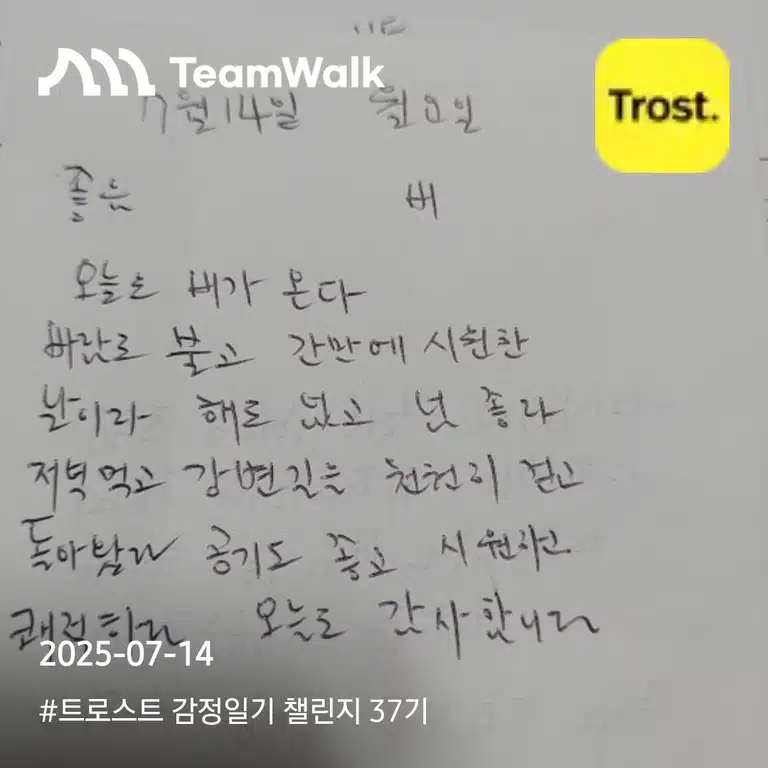 TeamWalk
Trost.
7월 14일 월요일
좋은 비
오늘도 비가 온다
바람도 불고 간만에 시원한
날이라 해도 없고 넘 좋다
저녁먹고 강변길을 천천히 걷고
돌아왔다 공기도 좋고 시원하고
쾌적하다 오늘도 감사합니다
2025-07-14
#트로스트 감정일기 챌린지 37기